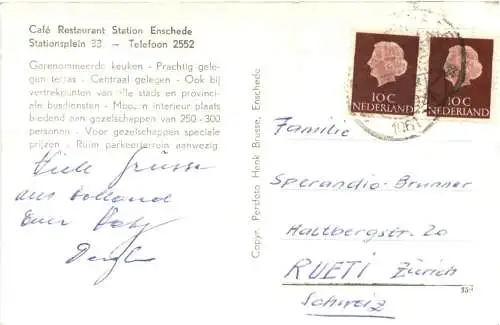 Café Restaurant Station Enschede
Stationsplein 33 — Telefoon 2552
Gerenommeerde keuken - Prachtig gele-
gen terras - Centraal gelegen - Ook bij
vertrekpunten van alle stads en provinci-
ale busdiensten - Modern interieur plaats
biedend aan gezelschappen van 250 - 300
personen - Voor gezelschappen speciale
prijzen - Ruim parkeerterrein aanwezig.
Viele Grüsse
aus Holland
Euer
Copyr. Persfoto Henk Brusse, Enschede
10 C
NEDERLAND
10 C
NEDERLAND
Familie
Sperandio-Brunner
Haltbergstr. 20
RUETI Zürich
Schweiz